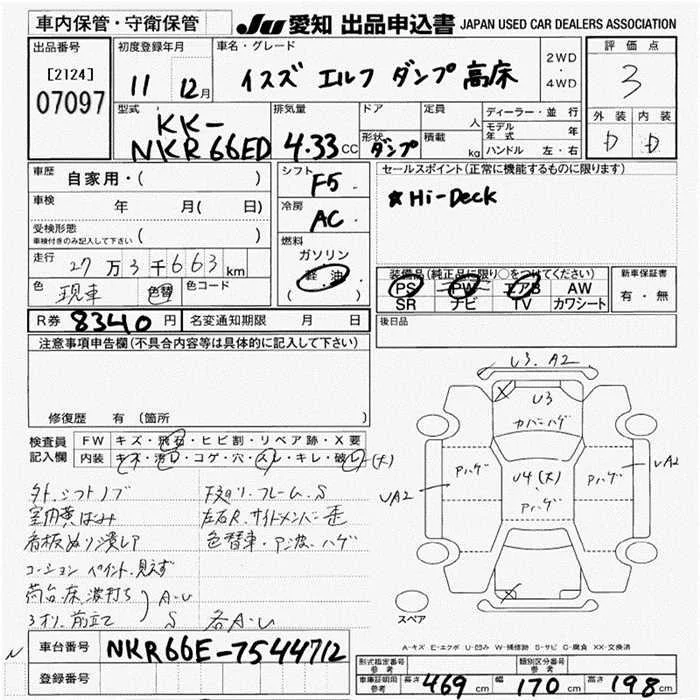 車内保管・守衛保管 JU 愛知 出品申込書 JAPAN USED CAR DEALERS ASSOCIATION
出品番号 [2124] 07097
初度登録年月 11 12月
車名・グレード いすズ エルフ ダンプ 高床
2WD・4WD
評価点 3
外装 内装
D D
型式 KK-NKR66ED
排気量 4.33 CC
ドア 形状 ダンプ
定員 人
積載 kg
ディーラー・並行
モデル年式 年
ハンドル 左・右
車歴 自家用・( )
シフト F5
セールスポイント(正常に機能するものに限ります)
★Hi-Deck
車検 年 月( 日)
冷房 AC
受検形態 車検付きのみ記入して下さい ( )
燃料 ガソリン 軽油 ( )
走行 27万3千663km
装備品(純正品に限り○をつけてください)
PS PW エアB AW
SR ナビ TV カワシート
新車保証書 有・無
色 現車 色替 色コード
R券 8340円 名変通知期限 月 日
後日品
注意事項申告欄(不具合内容等は具体的に記入して下さい)
修復歴 有(箇所 )
検査員記入欄 FW キズ・飛石・ヒビ割・リペア跡・X要
内装 キズ・汚レ・コゲ・穴・スレ・キレ・破レ(大)
外、シフトノブ
下廻り、フレーム、S
室内黄ばみ
左右R、サイドメンバー歪
看板ぬり潰しア
色替車・ア、波、ハゲ
コーション ペイント、見えず
荷台、床、波打ち A・U
3オリ、前立て S 各A・U
U3、A2
U3
カバーハゲ
Pハゲ U4(大) Pハゲ
Pハゲ
UA2 UA2
スペア
A-キズ E-エクボ U-凹み W-補修跡 S-サビ C-腐食 XX-交換済
車台番号 NKR66E-7544712
登録番号
型式指定番号 参考 類別区分番号 参考
車庫証明用 参考 長さ 469cm 幅 170cm 高さ 198cm